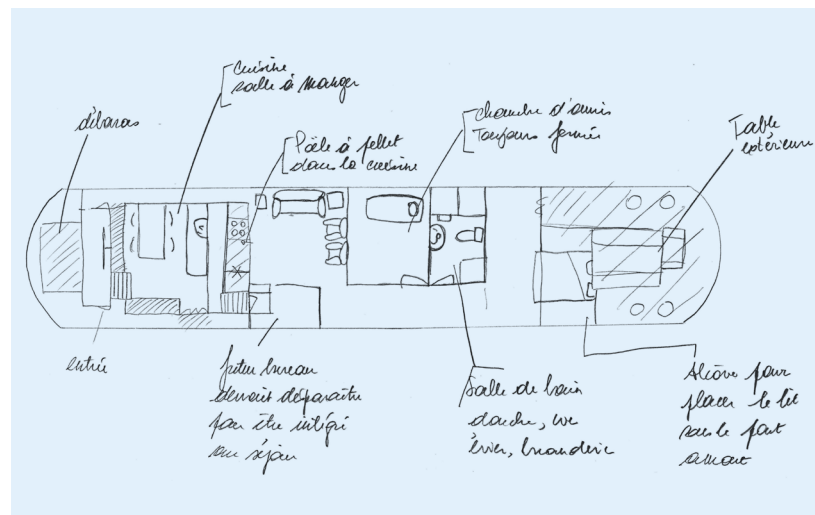 débaras
cuisine
salle à manger
Pôele à pellet
dans la cuisine
chambre d'amis
Toujours fermée
Table
extérieure
entrée
futur bureau
devrait disparaître
pour être intégré
au séjour
Salle de bain
douche, wc
évier, buanderie
Alcôve pour
placer le lit
sous le pont
amont